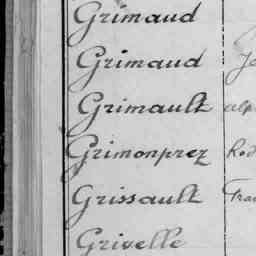 Grimaud
Grimaud
Grimault
Grimonprez
Grissault
Grivelle